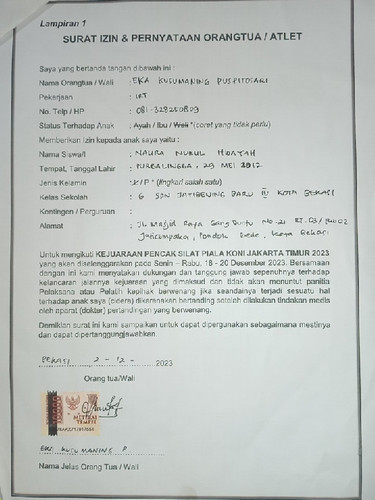 Lampiran 1
SURAT IZIN & PERNYATAAN ORANGTUA / ATLET
Saya yang bertanda tangan dibawah ini :
Nama Orangtua / Wali : EKA KUSUMANING PUSPITOSARI
Pekerjaan : IRT
No. Telp / HP : 081-328250809
Status Terhadap Anak : Ayah / Ibu / Wali *(coret yang tidak perlu)
Memberikan Izin kepada anak saya yaitu :
Nama Siswa/i : NAURA NURUL
Tempat, Tanggal Lahir : PURBALINGGA, 23 MEI 2012
Jenis Kelamin : L/P * (lingkari salah satu)
Kelas Sekolah : 6 SDN JATIBENING BARU IV KOTA BEKASI
Kontingen / Perguruan :
Alamat : JL. Masjid Raya No. 21 RT.03/RW.02
Jaticempaka, Pondok Gede, Kota Bekasi
Untuk mengikuti KEJUARAAN PENCAK SILAT PIALA KONI JAKARTA TIMUR 2023
yang akan diselenggarakan pada Senin – Rabu, 18 - 20 Desember 2023. Bersamaan
dengan ini kami menyatakan dukungan dan tanggung jawab sepenuhnya terhadap
kelancaran jalannya kejuaraan yang dimaksud dan tidak akan menuntut panitia
Pelaksana atau Pelatih kepihak berwenang jika seandainya terjadi sesuatu hal
terhadap anak saya (cidera) dikarenakan bertanding setelah dilakukan tindakan medis
oleh aparat (dokter) pertandingan yang berwenang.
Demikian surat ini kami sampaikan untuk dapat dipergunakan sebagaimana mestinya
dan dapat dipertanggungjawabkan.
BEKASI 2 - 12 - 2023
Orang tua/Wali
10000
METERAI
TEMPEL
EKA KUSUMANING P
Nama Jelas Orang Tua / Wali